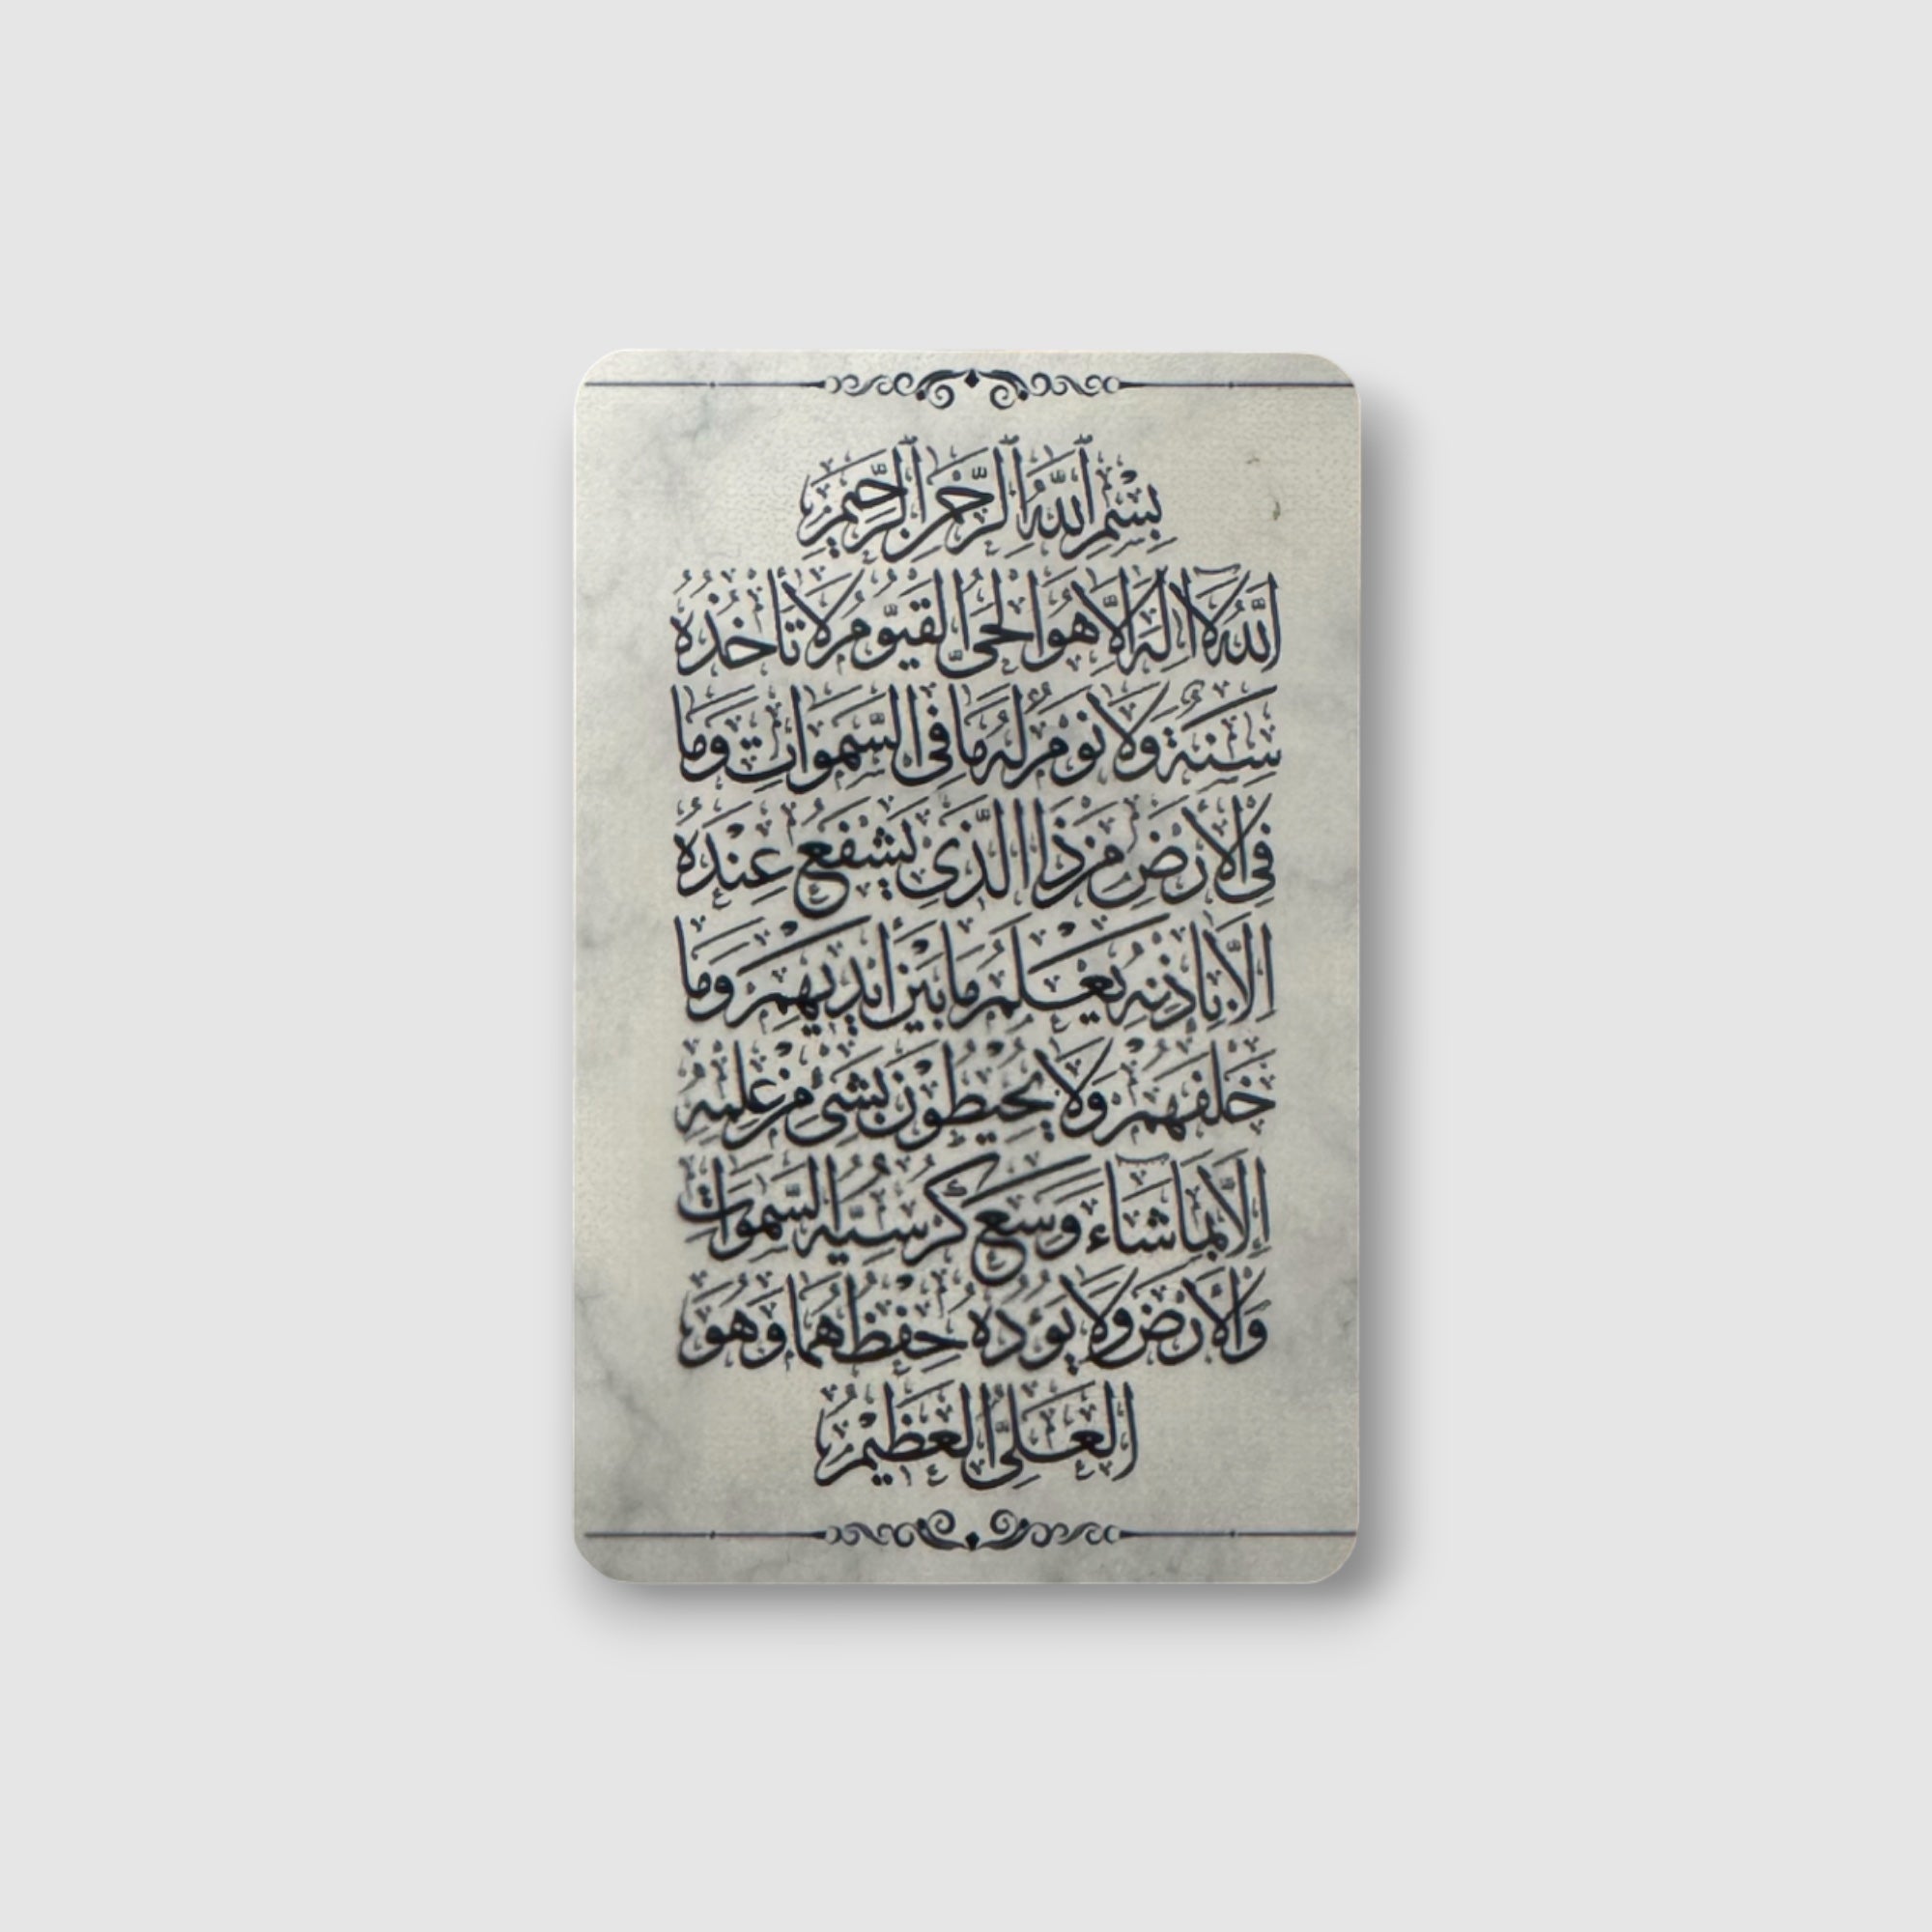 بِسْمِ اللهِ الرَّحْمٰنِ الرَّحِيمِ
اَللهُ لَا اِلٰهَ اِلَّا هُوَ الْحَيُّ الْقَيُّومُ لَا تَأْخُذُهُ
سِنَةٌ وَلَا نَوْمٌ لَهُ مَا فِي السَّمٰوَاتِ وَمَا
فِي الْاَرْضِ مَنْ ذَا الَّذِي يَشْفَعُ عِنْدَهُ
اِلَّا بِاِذْنِهِ يَعْلَمُ مَا بَيْنَ اَيْدِيهِمْ وَمَا
خَلْفَهُمْ وَلَا يُحِيطُونَ بِشَيْءٍ مِنْ عِلْمِهِ
اِلَّا بِمَا شَاءَ وَسِعَ كُرْسِيُّهُ السَّمٰوَاتِ
وَالْاَرْضَ وَلَا يَؤُدُهُ حِفْظُهُمَا وَهُوَ
الْعَلِيُّ الْعَظِيمُ